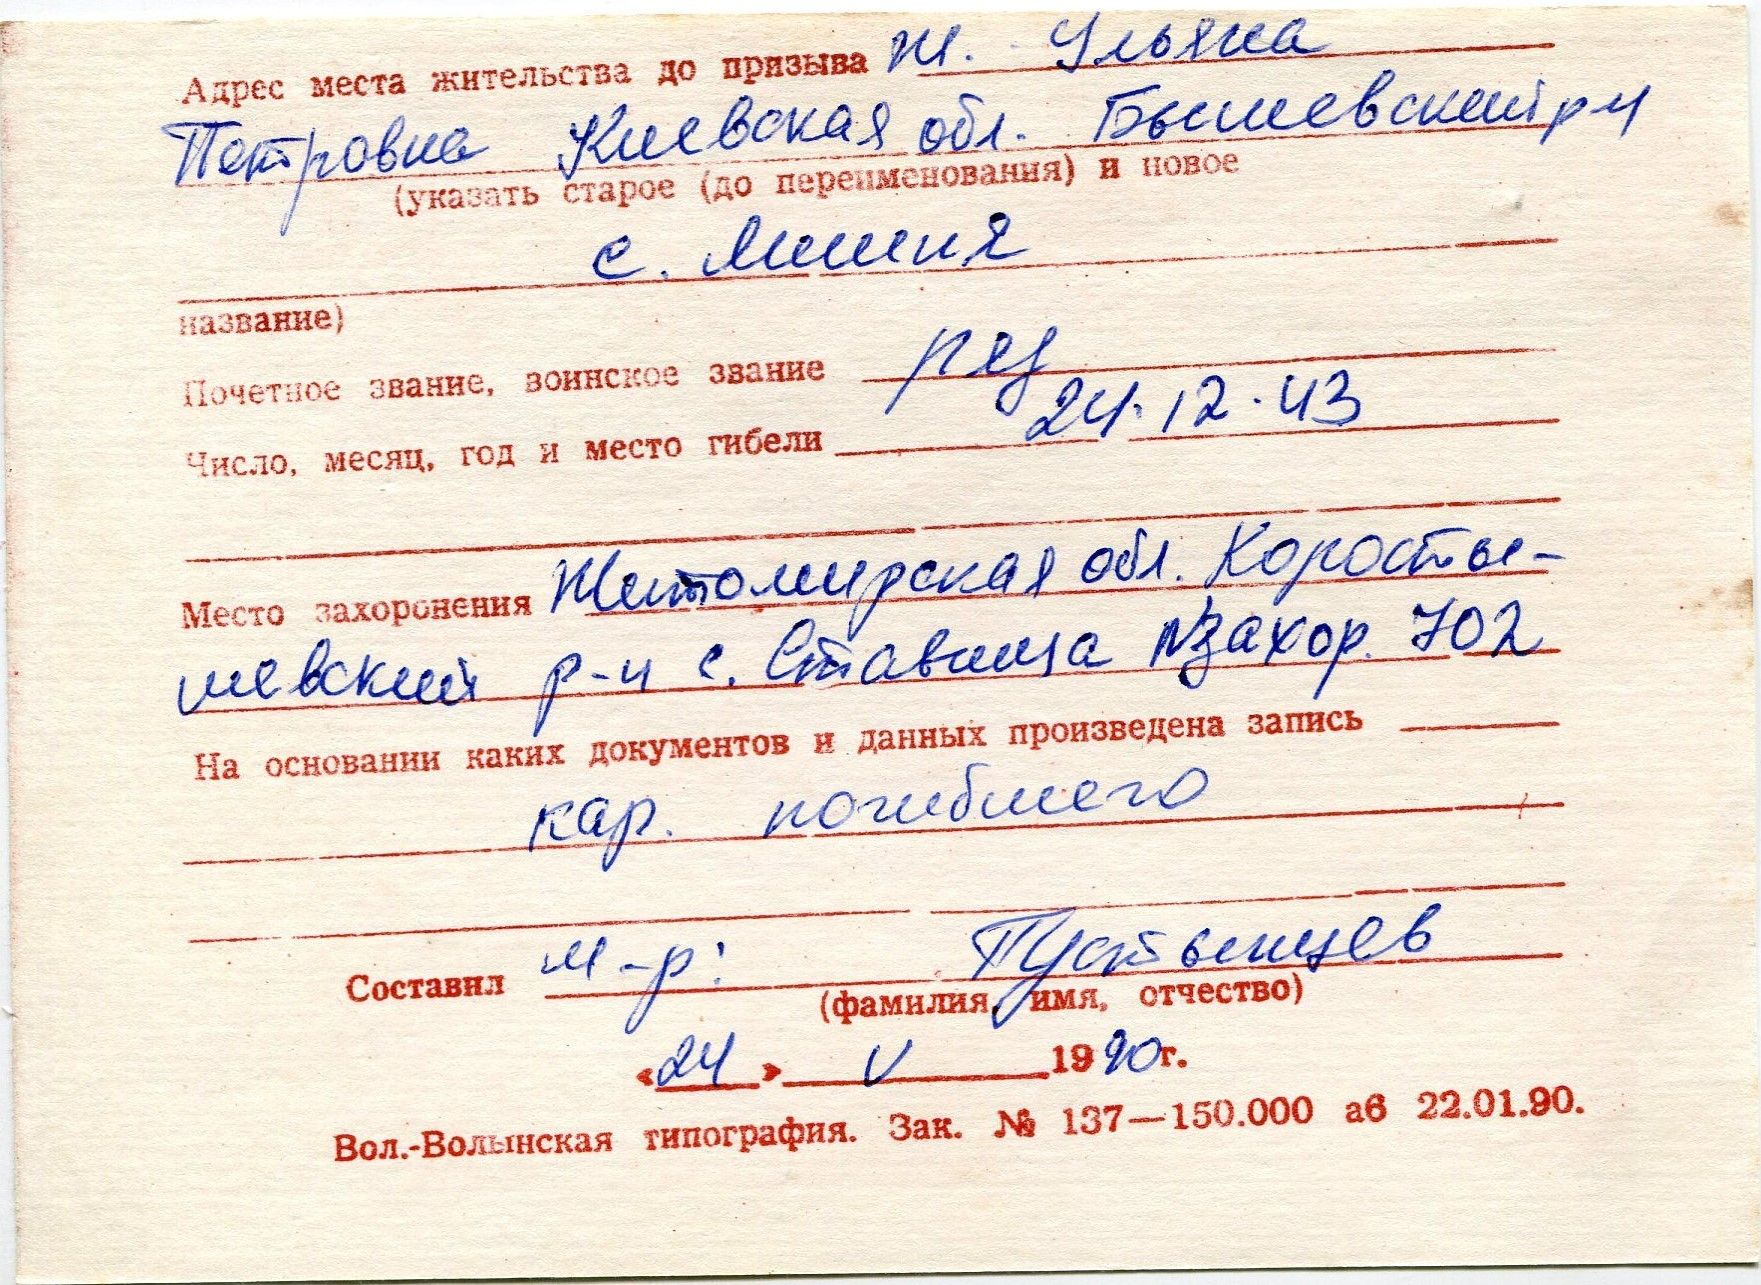 Адрес места жительства до призыва ж. Ульяна
Петровна Киевская обл. Бышевский р-н
(указать старое (до переименования) и новое
с.
название)
Почетное звание, воинское звание ряд
Число, месяц, год и место гибели 24.12.43
Место захоронения Житомирская обл. Коросты-
шевский р-н с. Ставища №захор. 702
На основании каких документов и данных произведена запись
кар. погибшего
Составил м-р: Пустынцев
(фамилия, имя, отчество)
«24» V 1990г.
Вол.-Волынская типография. Зак. № 137—150.000 аб 22.01.90.